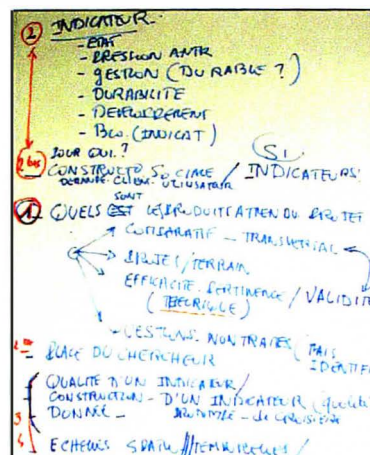 2 INDICATEUR.
- ETAT
- PRESSION ANTR
- GESTION (DURABLE ?)
- DURABILITÉ
- DEVELOPPEMENT
- (INDICAT)
2 bis POUR QUI ?
CONSTRUCTO SOCIALE / INDICATEURS
DEMANDE CLIENT UTILISATEUR
SONT
1 QUELS EST LES PRODUITS ATTENDU PROJET
COMPARATIF - TRANSVERSAL
PROJET / TERRAIN
EFFICACITE PERTINENCE / VALIDITE
(THEORIQUE)
QUESTIONS NON TRAITES (MAIS
IDENTIFI
PLACE DU CHERCHEUR
QUALITE D'UN INDICATEUR /
CONSTRUCTION - D'UN INDICATEUR (qualité
3 DONNÉE - de
4 ECHELLES SPATIA / TEMPORELLES /